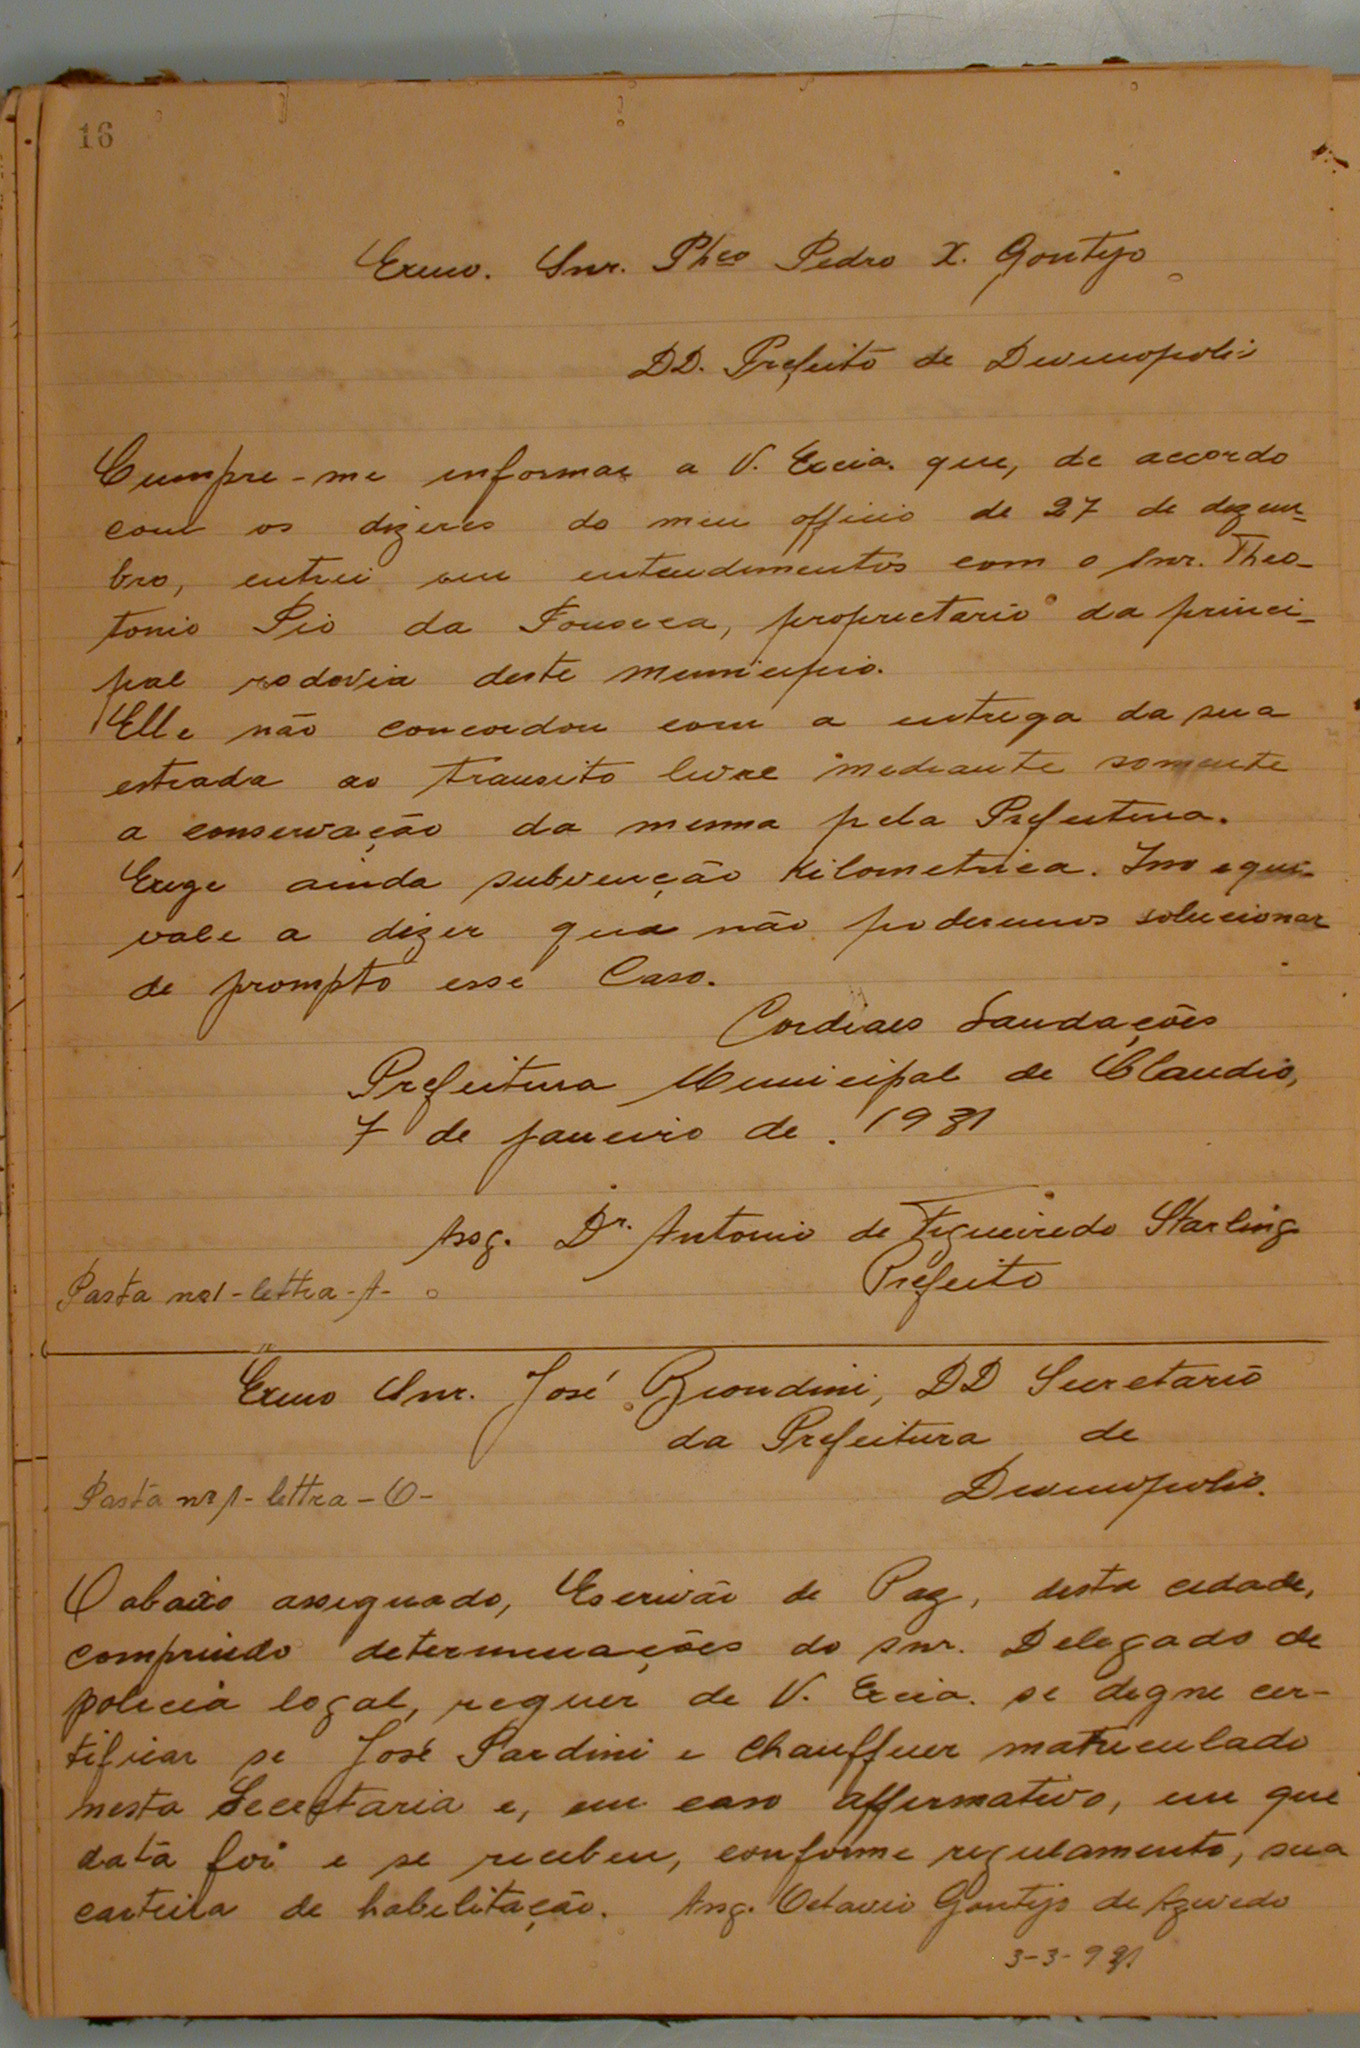 16
Exmo. Snr. Phco Pedro X. Gontijo
DD. Prefeito de Divinopolis
Cumpre-me informar a V. Excia. que, de accordo
com os dizeres do meu officio de 27 de dezem-
bro, entrei em entendimentos com o snr. Theo-
tonio Pio da Fonseca, proprietario da princi-
pal rodovia deste municipio.
Elle não concordou com a entrega da sua
estrada ao transito livre mediante somente
a conservação da mesma pela Prefeitura.
Exige ainda subvenção kilometrica. Isso equi-
vale a dizer que não poderemos solucionar
de prompto esse Caso.
Cordiaes Saudações
Prefeitura Municipal de Claudio,
7 de janeiro de 1931
Assg. Dr. Antonio de Figueiredo Starling
Prefeito
Pasta nº1-lettra-A-
Exmo Snr. José Biondini, DD Secretario
da Prefeitura de
Divinopolis.
Pasta nº1-lettra-O-
O abaixo assignado, Escrivão de Paz, desta cidade,
comprindo determinações do snr. Delegado de
policia local, requer de V. Excia. se digne cer-
tificar se José Pardini e chauffeur matriculado
nesta Secretaria e, em caso affirmativo, em que
data foi e se recebeu, conforme regulamento, sua
carteira de habilitação. Assg. Octavio Gontijo de Azevedo
3-3-931